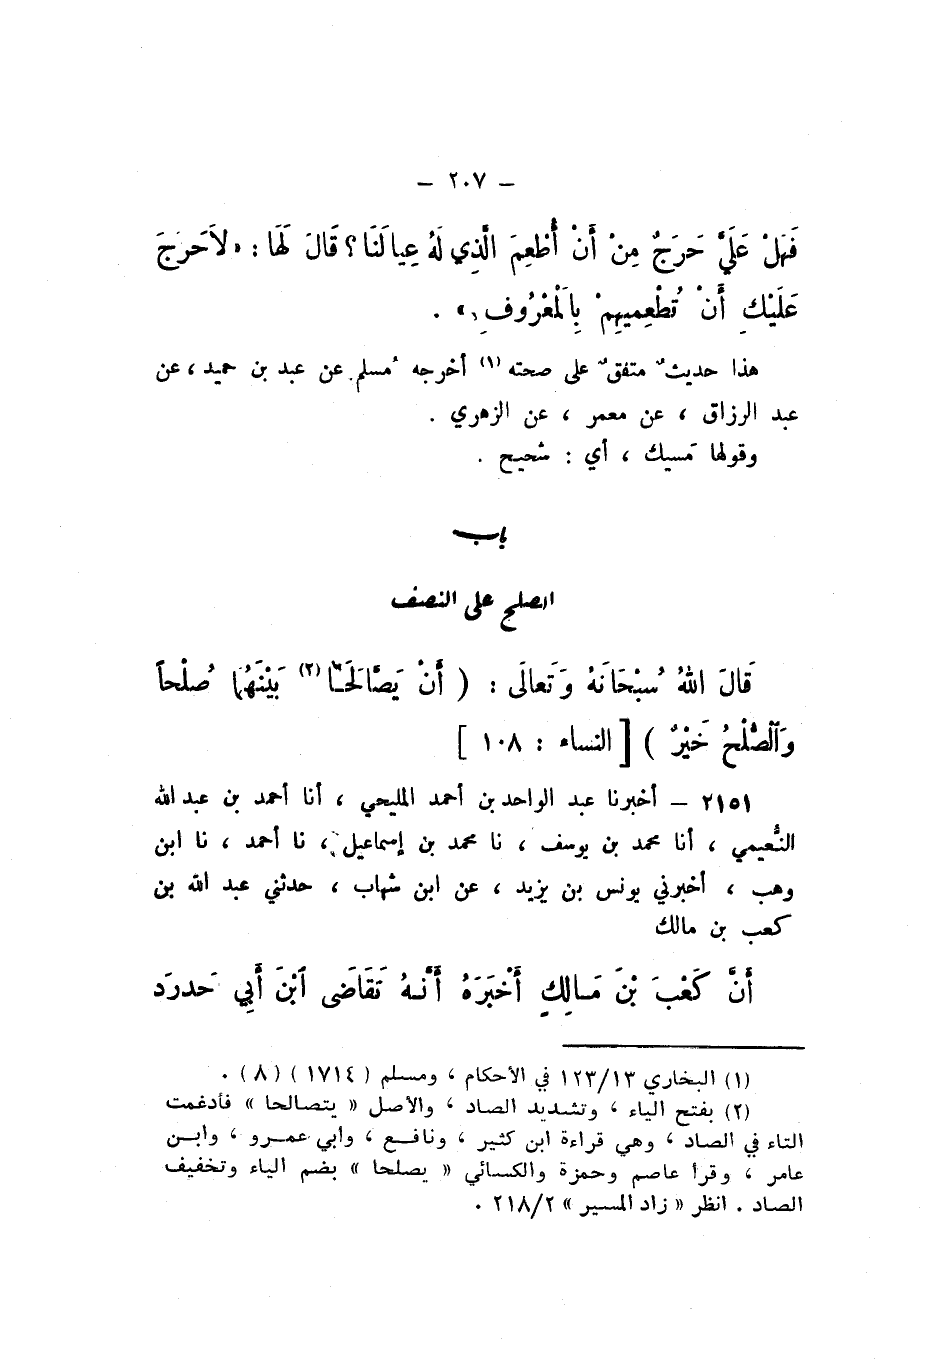 – ٢٠٧ –
فَهَلْ عَلَيَّ حَرَجٌ مِنْ أَنْ أُطْعِمَ الَّذِي لَهُ عِيالَنَا ؟ قَالَ لَهَا : « لاَحَرَجَ
عَلَيْكِ أَنْ تُطْعِمِيهِمْ بِالْمَعْرُوفِ » .
هذا حديثٌ متفقٌ على صحته (١) أخرجه مُسلم عن عبد بن حميد ، عن
عبد الرزاق ، عن معمر ، عن الزهري .
وقولها مَسيك ، أي : شحيح .
باب
الصلح على النصف
قَالَ اللهُ سُبْحَانَهُ وَتَعالَى : ( أَنْ يَصَّالَحَـا (٢) بَيْنَهُمَا صُلْحاً
وَالصُّلْحُ خَيْرٌ ) [ النساء : ١٠٨ ]
٢١٥١ – أخبرنا عبد الواحد بن أحمد المليحي ، أنا أحمد بن عبد الله
النُّعيمي ، أنا محمد بن يوسف ، نا محمد بن إسماعيل ، نا أحمد ، نا ابن
وهب ، أخبرني يونس بن يزيد ، عن ابن شهاب ، حدثني عبد الله بن
كعب بن مالك
أَنَّ كَعْبَ بْنَ مَـالِكٍ أَخْبَرَهُ أَنَّـهُ تَقَاضَى ابْنَ أَبِي حَدرَد
(١) البخاري ١٢٣/١٣ في الأحكام ، ومسلم ( ١٧١٤ ) ( ٨ ) .
(٢) بفتح الياء ، وتشديد الصاد ، والأصل « يتصالحا » فأدغمت
التاء في الصاد ، وهي قراءة ابن كثير ، ونافـع ، وأبي عمـرو ، وابـن
عامر ، وقرأ عاصم وحمزة والكسائي « يصلحا » بضم الياء وتخفيف
الصاد . انظر « زاد المسير » ٢١٨/٢ .